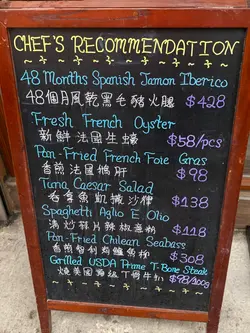 CHEF'S RECOMMENDATION
48 Months Spanish Jamon Iberico
48個月風乾黑毛豬火腿 $428
Fresh French Oyster
新鮮法國生蠔 $58/pcs
Pan-Fried French Foie Gras
香煎法國鵝肝 $98
Tuna Caesar Salad
吞拿魚凱撒沙律 $138
Spaghetti Aglio E Olio
清炒蒜片辣椒意粉 $118
Pan-Fried Chilean Seabass
香煎智利鱸魚 $308
Grilled USDA Prime T-Bone Steak
燒美國頂級T骨牛扒 $98/100g